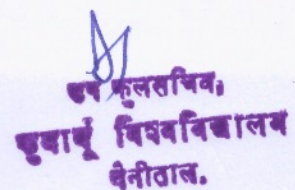 उप कुलसचिव,
कुमायूँ विश्वविद्यालय
नैनीताल.